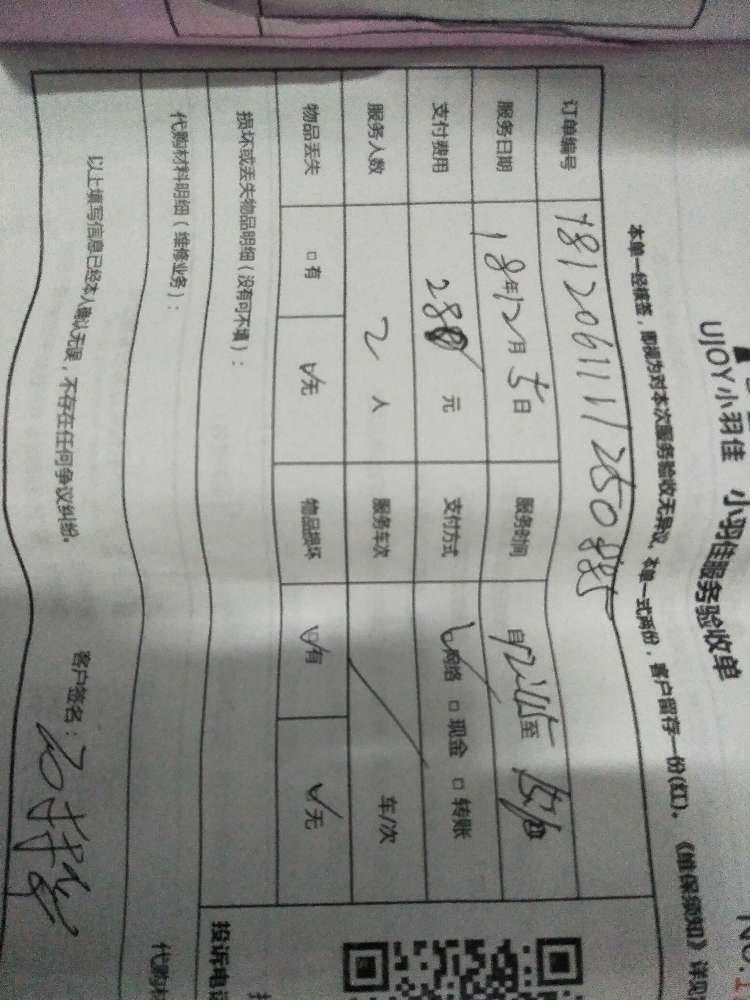 UJOY小羽佳 小羽佳服务验收单
本单一经接签，即视为对本次服务验收无异议。本单一式两份，客户留存一份(红)。《维保须知》详见
订单编号 181206111125
服务日期 18年12月5日 服务时间 自 至
支付费用 280元 支付方式 ☑网络 □现金 □转账
服务人数 2人 服务车次 车/次
物品丢失 □有 ☑无 物品损坏 □有 ☑无
损坏或丢失物品明细（没有可不填）：
代购材料明细（维修业务）：
以上填写信息已经本人确认无误，不存在任何争议纠纷。 客户签名：
No.1
投诉电
代购